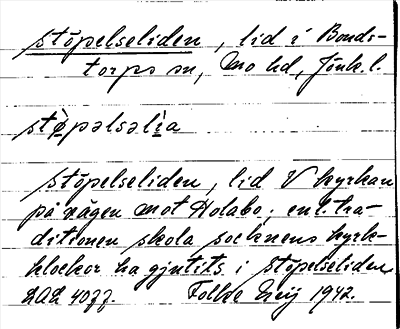 stöpelseliden, lid i Bonds-
torps sn, Mo hd, Jönk. l.
stø̀pəlsəlìa
stöpelseliden, lid V kyrkan
på vägen mot Holabo; enl. tra-
ditionen skola socknens kyrk-
klockor ha gjutits i stöpelseliden.
Folke 1942.